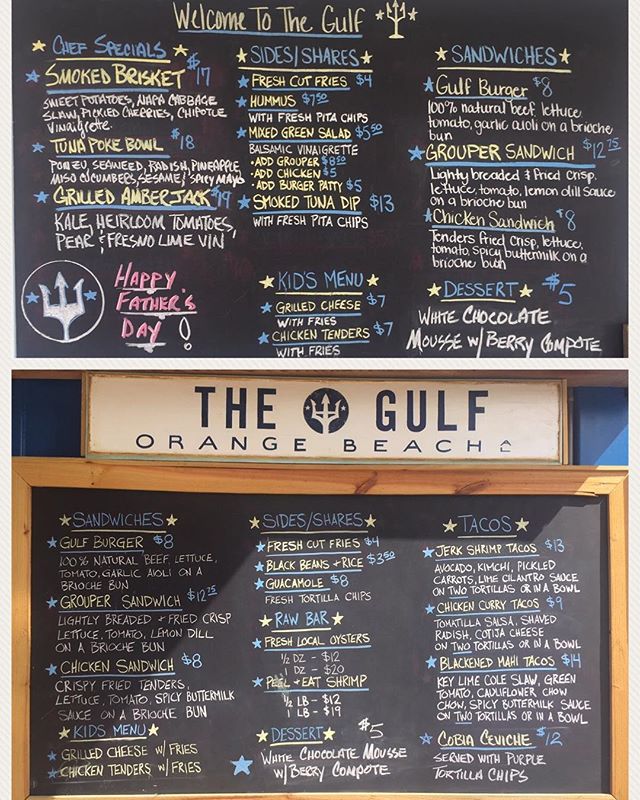 Welcome To The Gulf
CHEF SPECIALS
SMOKED BRISKET $17
SWEET POTATOES, NAPA CABBAGE
SLAW, PICKLED CHERRIES, CHIPOTLE
Vinaigrette
TUNA POKE BOWL $18
PONZU, SEAWEED, RADISH, PINEAPPLE
MISO CUCUMBERS, SESAME & SPICY MAYO
GRILLED AMBERJACK $19
KALE, HEIRLOOM TOMATOES,
PEAR & FRESNO LIME VIN
HAPPY
FATHER'S
DAY!
SIDES/SHARES
FRESH CUT FRIES $4
HUMMUS $7.50
WITH FRESH PITA CHIPS
MIXED GREEN SALAD $5.50
BALSAMIC VINAIGRETTE
• ADD GROUPER $8.50
• ADD CHICKEN $5
• ADD BURGER PATTY $5
SMOKED TUNA DIP $13
WITH FRESH PITA CHIPS
KID'S MENU
GRILLED CHEESE $7
WITH FRIES
CHICKEN TENDERS $7
WITH FRIES
SANDWICHES
Gulf Burger $8
100% natural beef, lettuce,
tomato, garlic aioli on a brioche
bun
GROUPER SANDWICH $12.75
Lightly breaded & fried crisp.
lettuce, tomato, lemon dill sauce
on a brioche bun
Chicken Sandwich $8
Tenders fried crisp, lettuce,
tomato, spicy buttermilk on a
brioche bun
DESSERT $5
WHITE CHOCOLATE
MOUSSE W/ BERRY COMPOTE
THE GULF
ORANGE BEACH
SANDWICHES
GULF BURGER $8
100% NATURAL BEEF, LETTUCE,
TOMATO, GARLIC AIOLI ON A
BRIOCHE BUN
GROUPER SANDWICH $12.75
LIGHTLY BREADED + FRIED CRISP
LETTUCE, TOMATO, LEMON DILL
ON A BRIOCHE BUN
CHICKEN SANDWICH $8
CRISPY FRIED TENDERS,
LETTUCE, TOMATO, SPICY BUTTERMILK
SAUCE ON A BRIOCHE BUN
KIDS MENU
GRILLED CHEESE W/ FRIES
CHICKEN TENDERS W/ FRIES
SIDES/SHARES
FRESH CUT FRIES $4
BLACK BEANS + RICE $3.50
GUACAMOLE $8
FRESH TORTILLA CHIPS
RAW BAR
FRESH LOCAL OYSTERS
1/2 DZ - $12
1 DZ - $20
PEEL + EAT SHRIMP
1/2 LB - $12
1 LB - $19
DESSERT $5
WHITE CHOCOLATE MOUSSE
W/ BERRY COMPOTE
TACOS
JERK SHRIMP TACOS $13
AVOCADO, KIMCHI, PICKLED
CARROTS, LIME CILANTRO SAUCE
ON TWO TORTILLAS OR IN A BOWL
CHICKEN CURRY TACOS $9
TOMATILLA SALSA, SHAVED
RADISH, COTIJA CHEESE
ON TWO TORTILLAS OR IN A BOWL
BLACKENED MAHI TACOS $14
KEY LIME COLE SLAW, GREEN
TOMATO, CAULIFLOWER CHOW
CHOW, SPICY BUTTERMILK SAUCE
ON TWO TORTILLAS OR IN A BOWL
COBIA CEVICHE $12
SERVED WITH PURPLE
TORTILLA CHIPS